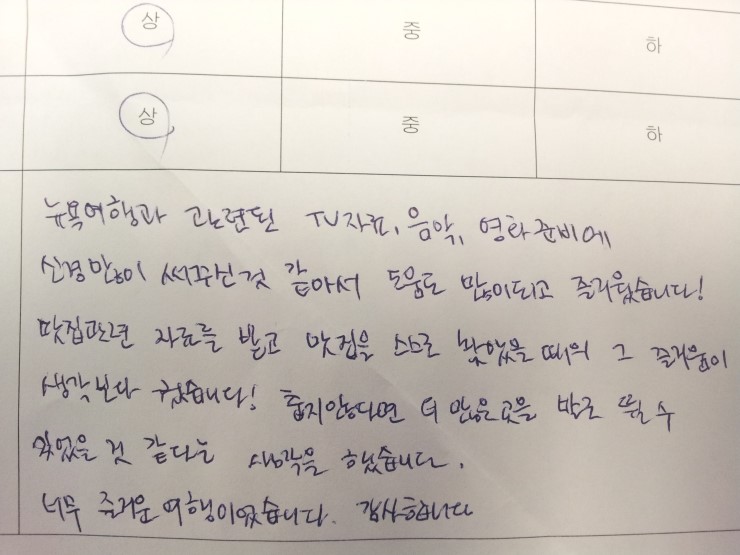 상 중 하
상 중 하
뉴욕여행과 관련된 TV자료, 음악, 영화준비에
신경많이 써주신것 같아서 도움도 많이되고 즐거웠습니다!
맛집관련 자료를 받고 맛집을 스스로 찾았을 때의 그 즐거움이
생각보다 컸습니다! 춥지않다면 더 많은곳을 발로 뛸 수
있었을 것 같다는 생각을 했습니다.
너무 즐거운 여행이었습니다. 감사합니다